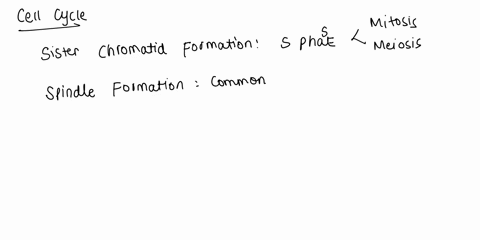 Cell Cycle
Sister Chromatid Formation: S PhaSE < Mitosis
Meiosis
Spindle Formation : Common